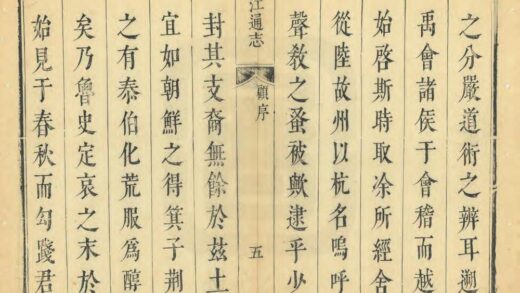 之分嚴道術之辨耳遡
禹會諸侯于會稽而越
始啓斯時取凃所經舍
從陸故州以杭名嗚呼
聲教之蚤被歟逮乎少
江通志
顧序
五
封其支裔無餘於玆土
宜如朝鮮之得箕子荆
之有泰伯化荒服爲醇
矣乃魯史定哀之末於
始見于春秋而勾踐君